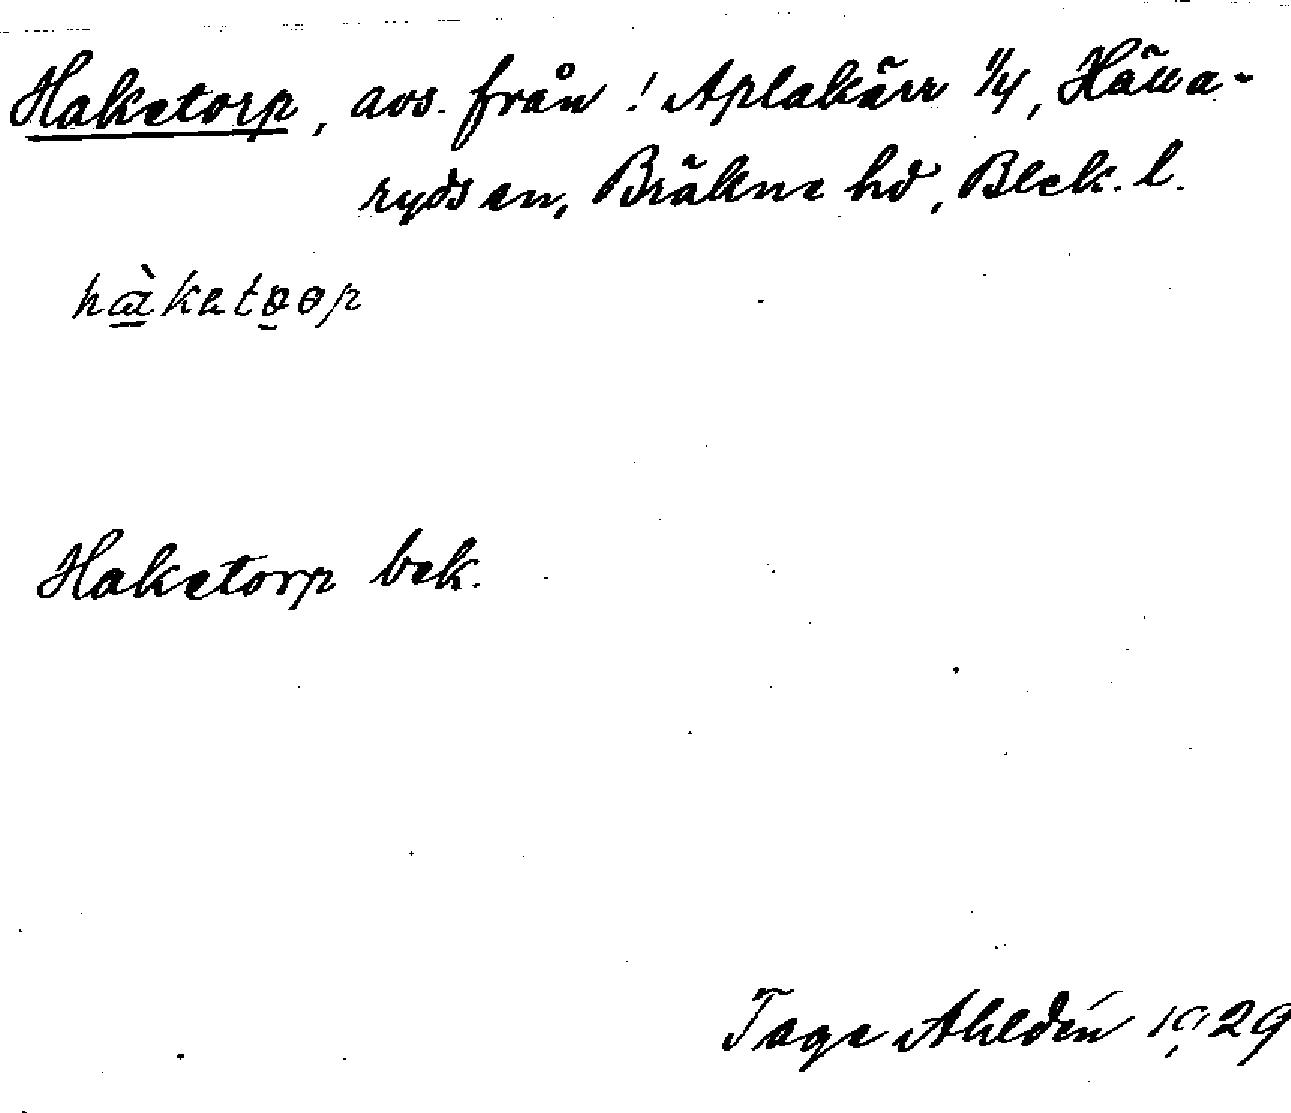 Haketorp, avs. från ! Aplakärr 1/4, Hälla-
ryds sn, Bräkne hd, Blek. l.
hàkatoop
Haketorp bek.
Tage Ahldén 1929